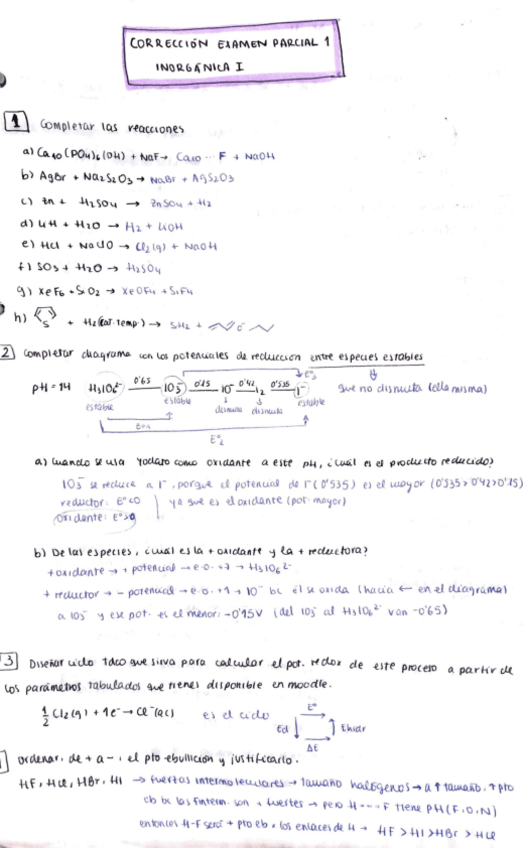 CORRECCIÓN EXAMEN PARCIAL 1
INORGÁNICA I
1 Completar las reacciones
a) Ca10(PO4)6(OH) + NaF → Ca10 ... F + NaOH
b) AgBr + Na2S2O3 → NaBr + AgS2O3
c) Zn + H2SO4 → ZnSO4 + H2
d) LiH + H2O → H2 + LiOH
e) HCl + NaClO → Cl2(g) + NaOH
f) SO3 + H2O → H2SO4
g) XeF6 + SiO2 → XeOF4 + SiF4
h) S + H2 (cat. temp) → SH2 + o
2 Completar diagrama con los potenciales de reducción entre especies estables
pH = 14 H3IO6²⁻ 0'65 IO3⁻ 0'15 IO⁻ 0'42 I2 0'535 I⁻ E°3 que no dismuta (ella misma)
estable estable dismuta dismuta estable
E°1
E°2
a) Cuando se usa Yodato como oxidante a este pH, ¿cuál es el producto reducido?
IO3⁻ se reduce a I⁻, porque el potencial de I⁻ (0'535) es el mayor (0'535 > 0'42 > 0'15)
reductor: E°<0 ya que es el oxidante (pot. mayor)
oxidante: E°>0
b) De las especies, ¿cuál es la + oxidante y la + reductora?
+ oxidante → + potencial → e.o. +7 → H3IO6²⁻
+ reductor → - potencial → e.o. +1 → IO⁻ bc él se oxida (hacia ← en el diagrama)
a IO3⁻ y ese pot. es el menor: -0'15V (del IO3⁻ al H3IO6²⁻ van -0'65)
3 Diseñar ciclo tdco que sirva para calcular el pot. redox de este proceso a partir de
los parámetros tabulados que tienes disponible en moodle.
½ Cl2(g) + 1e⁻ → Cl⁻(ac) es el ciclo E°
Ed Ehidr
ΔE
Ordenar, de + a -, el pto ebullición y justificarlo.
HF, HCl, HBr, HI → fuerzas intermoleculares → tamaño halógenos → a ↑ tamaño, ↑ pto
eb bc las Fintern. son + fuertes → pero H----F tiene PH (F,O,N)
entonces H-F será + pto eb. x los enlaces de H → HF > HI > HBr > HCl